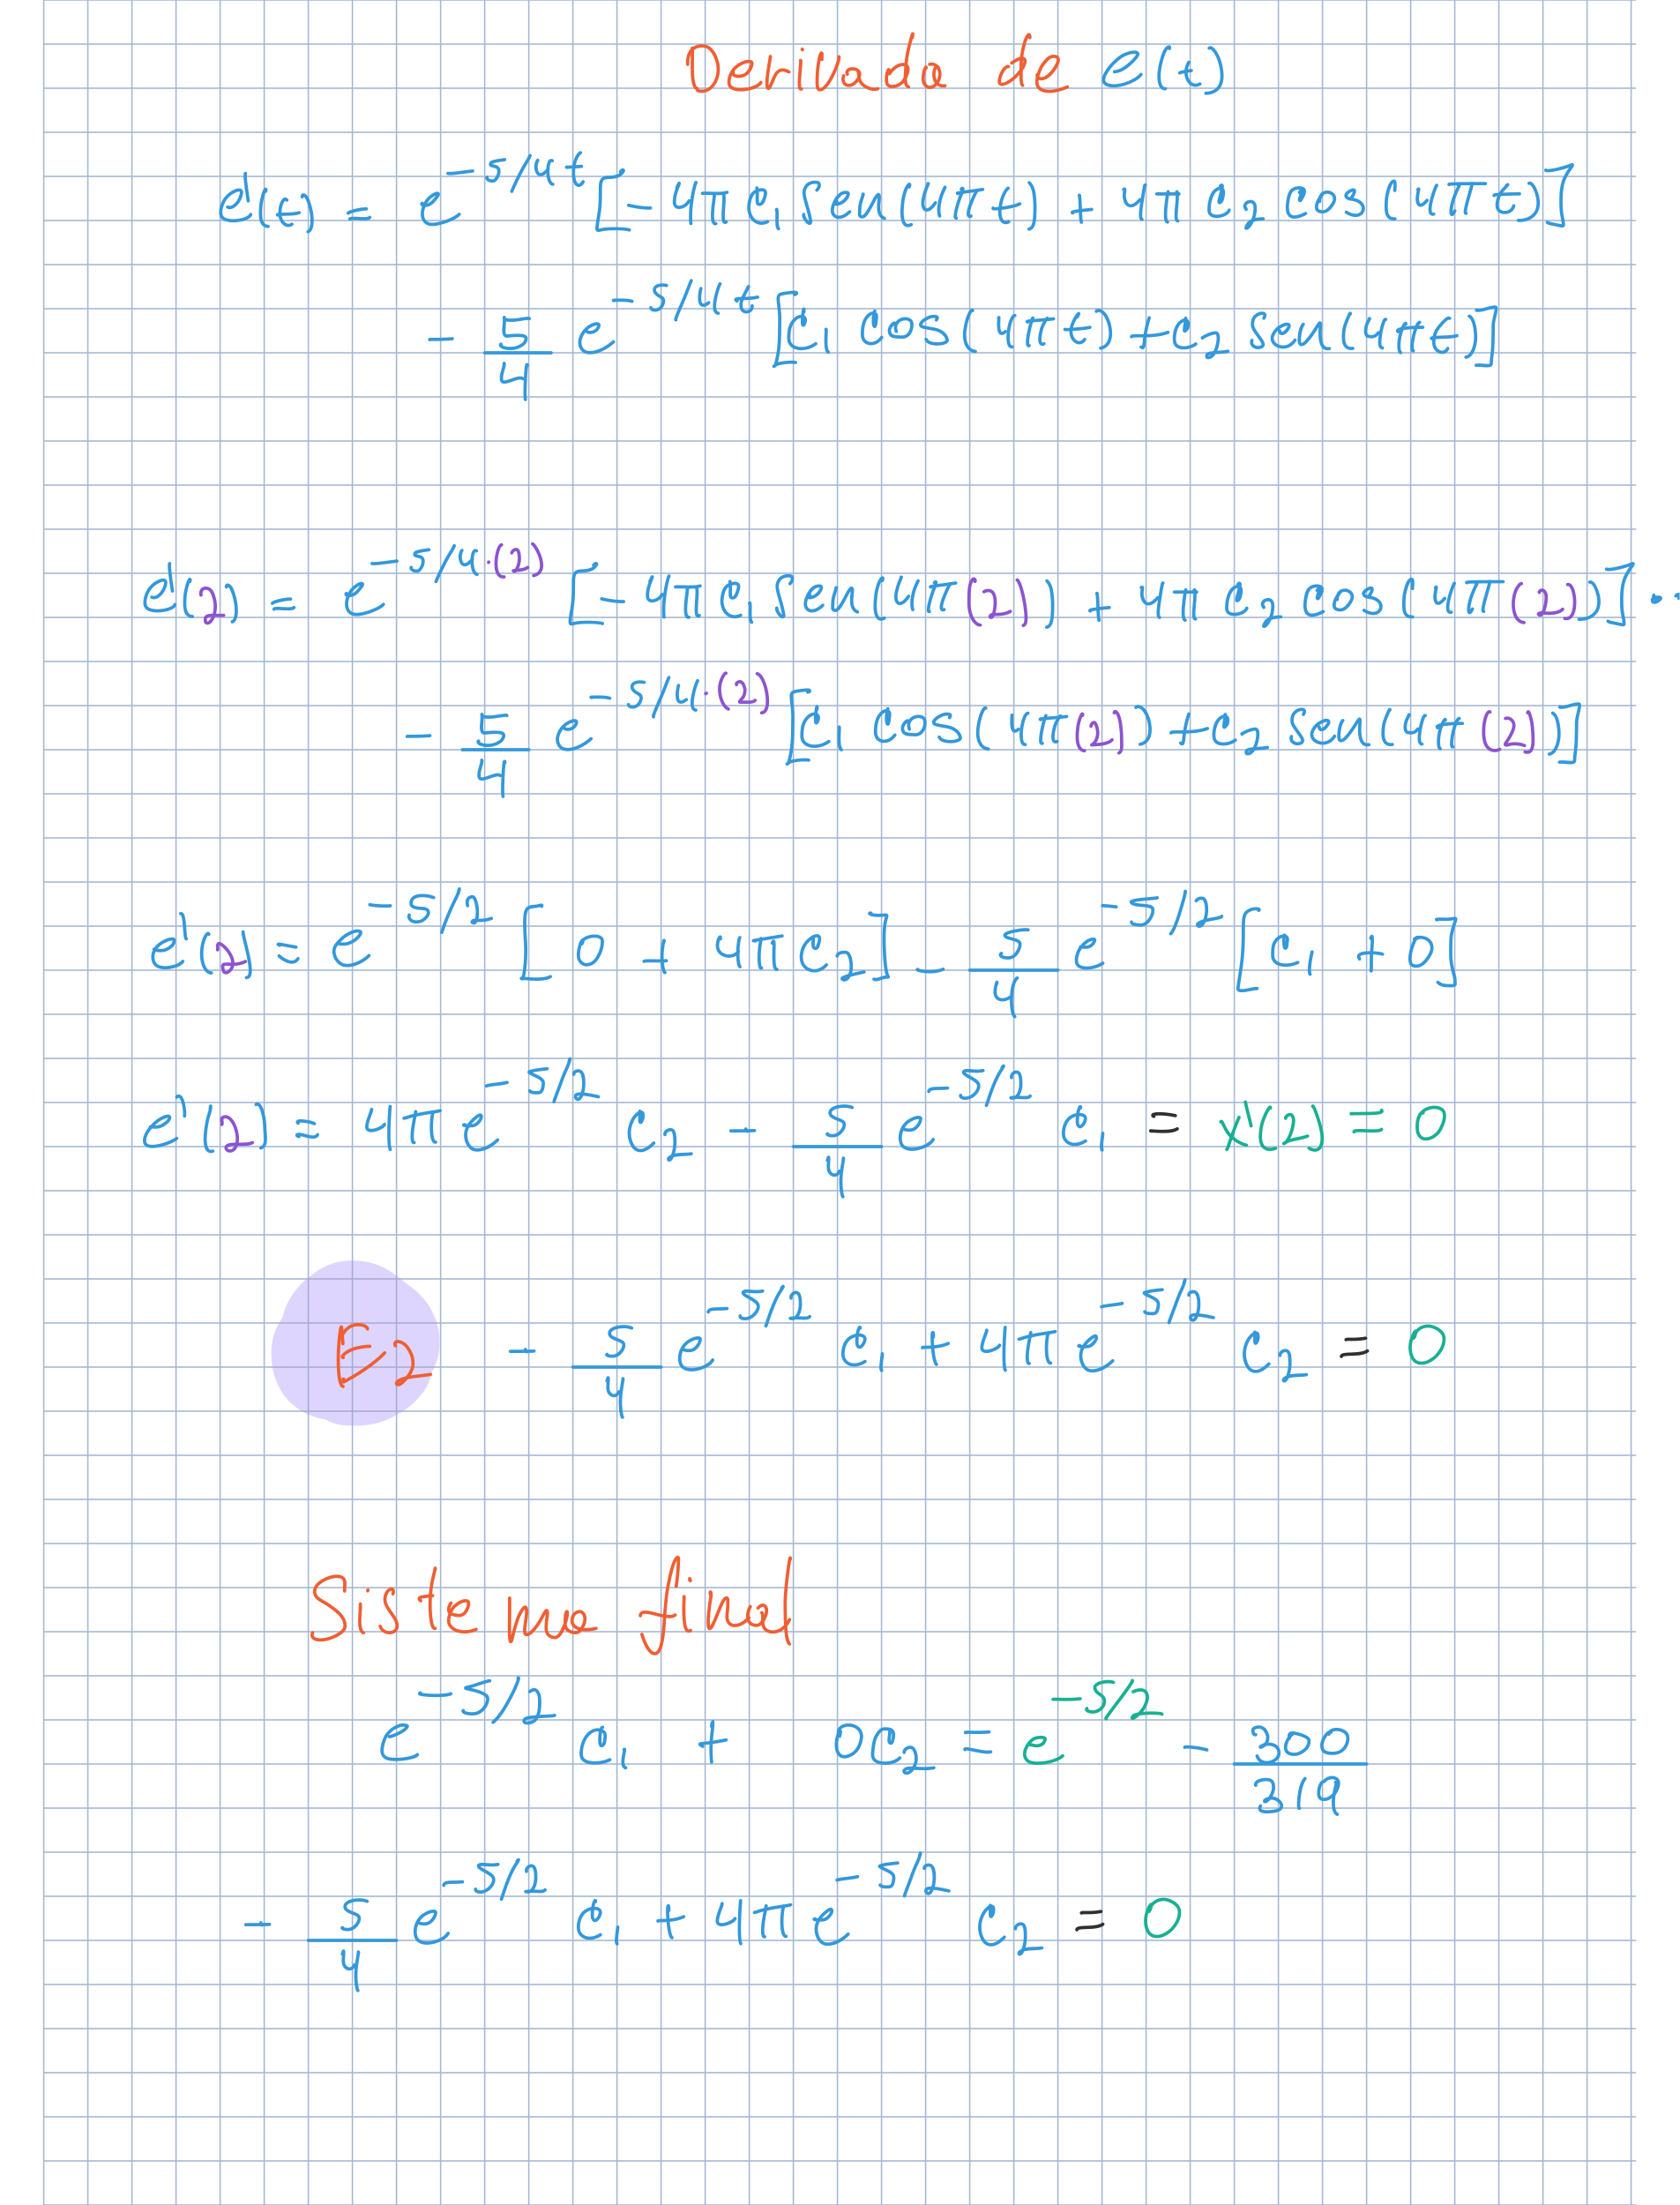 Derivada de e(t)
e'(t) = e^{-5/4t} [-4π c₁ Sen(4πt) + 4π c₂ cos(4πt)]
- 5/4 e^{-5/4t} [c₁ cos(4πt) + c₂ Sen(4πt)]
e'(2) = e^{-5/4·(2)} [-4π c₁ Sen(4π(2)) + 4π c₂ cos(4π(2))]..
- 5/4 e^{-5/4·(2)} [c₁ cos(4π(2)) + c₂ Sen(4π(2))]
e'(2) = e^{-5/2} [0 + 4π c₂] - 5/4 e^{-5/2} [c₁ + 0]
e'(2) = 4π e^{-5/2} c₂ - 5/4 e^{-5/2} c₁ = x'(2) = 0
E2 - 5/4 e^{-5/2} c₁ + 4π e^{-5/2} c₂ = 0
Sistema final
e^{-5/2} c₁ + 0c₂ = e^{-5/2} - 300/319
- 5/4 e^{-5/2} c₁ + 4π e^{-5/2} c₂ = 0